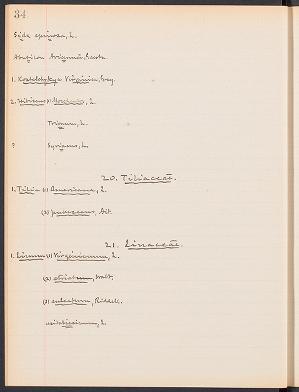 34
Sida spinosa, L.
Abutilon Avicennæ, Gaertn.
1. Kosteletzkya Virginica, Gray.
2. Hibiscus (1) Moscheutos, L.
Trionum, L.
? Syriacus, L.
20. Tiliaceæ.
1. Tilia (1) Americana, L.
(2) pubescens, Ait.
21. Linaceæ.
1. Linum (1) Virginianum, L.
(2) striatum, Walt.
(3) sulcatum, Riddell.
usitatissimum, L.